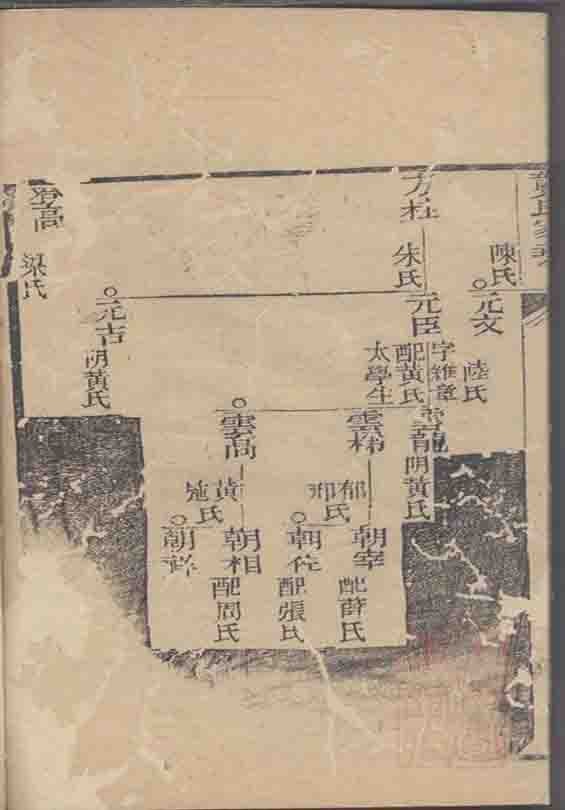 氏家
陳氏
元文
陸氏
方柱
朱氏
元臣
字維章
配黃氏
太學生
雲龍
陰黃氏
雲梯
郁氏
邢
朝宰
配薛氏
朝佐
配張氏
雲高
黃氏
施
朝相
配周氏
朝
元吉
陰黃氏
登高
梁氏